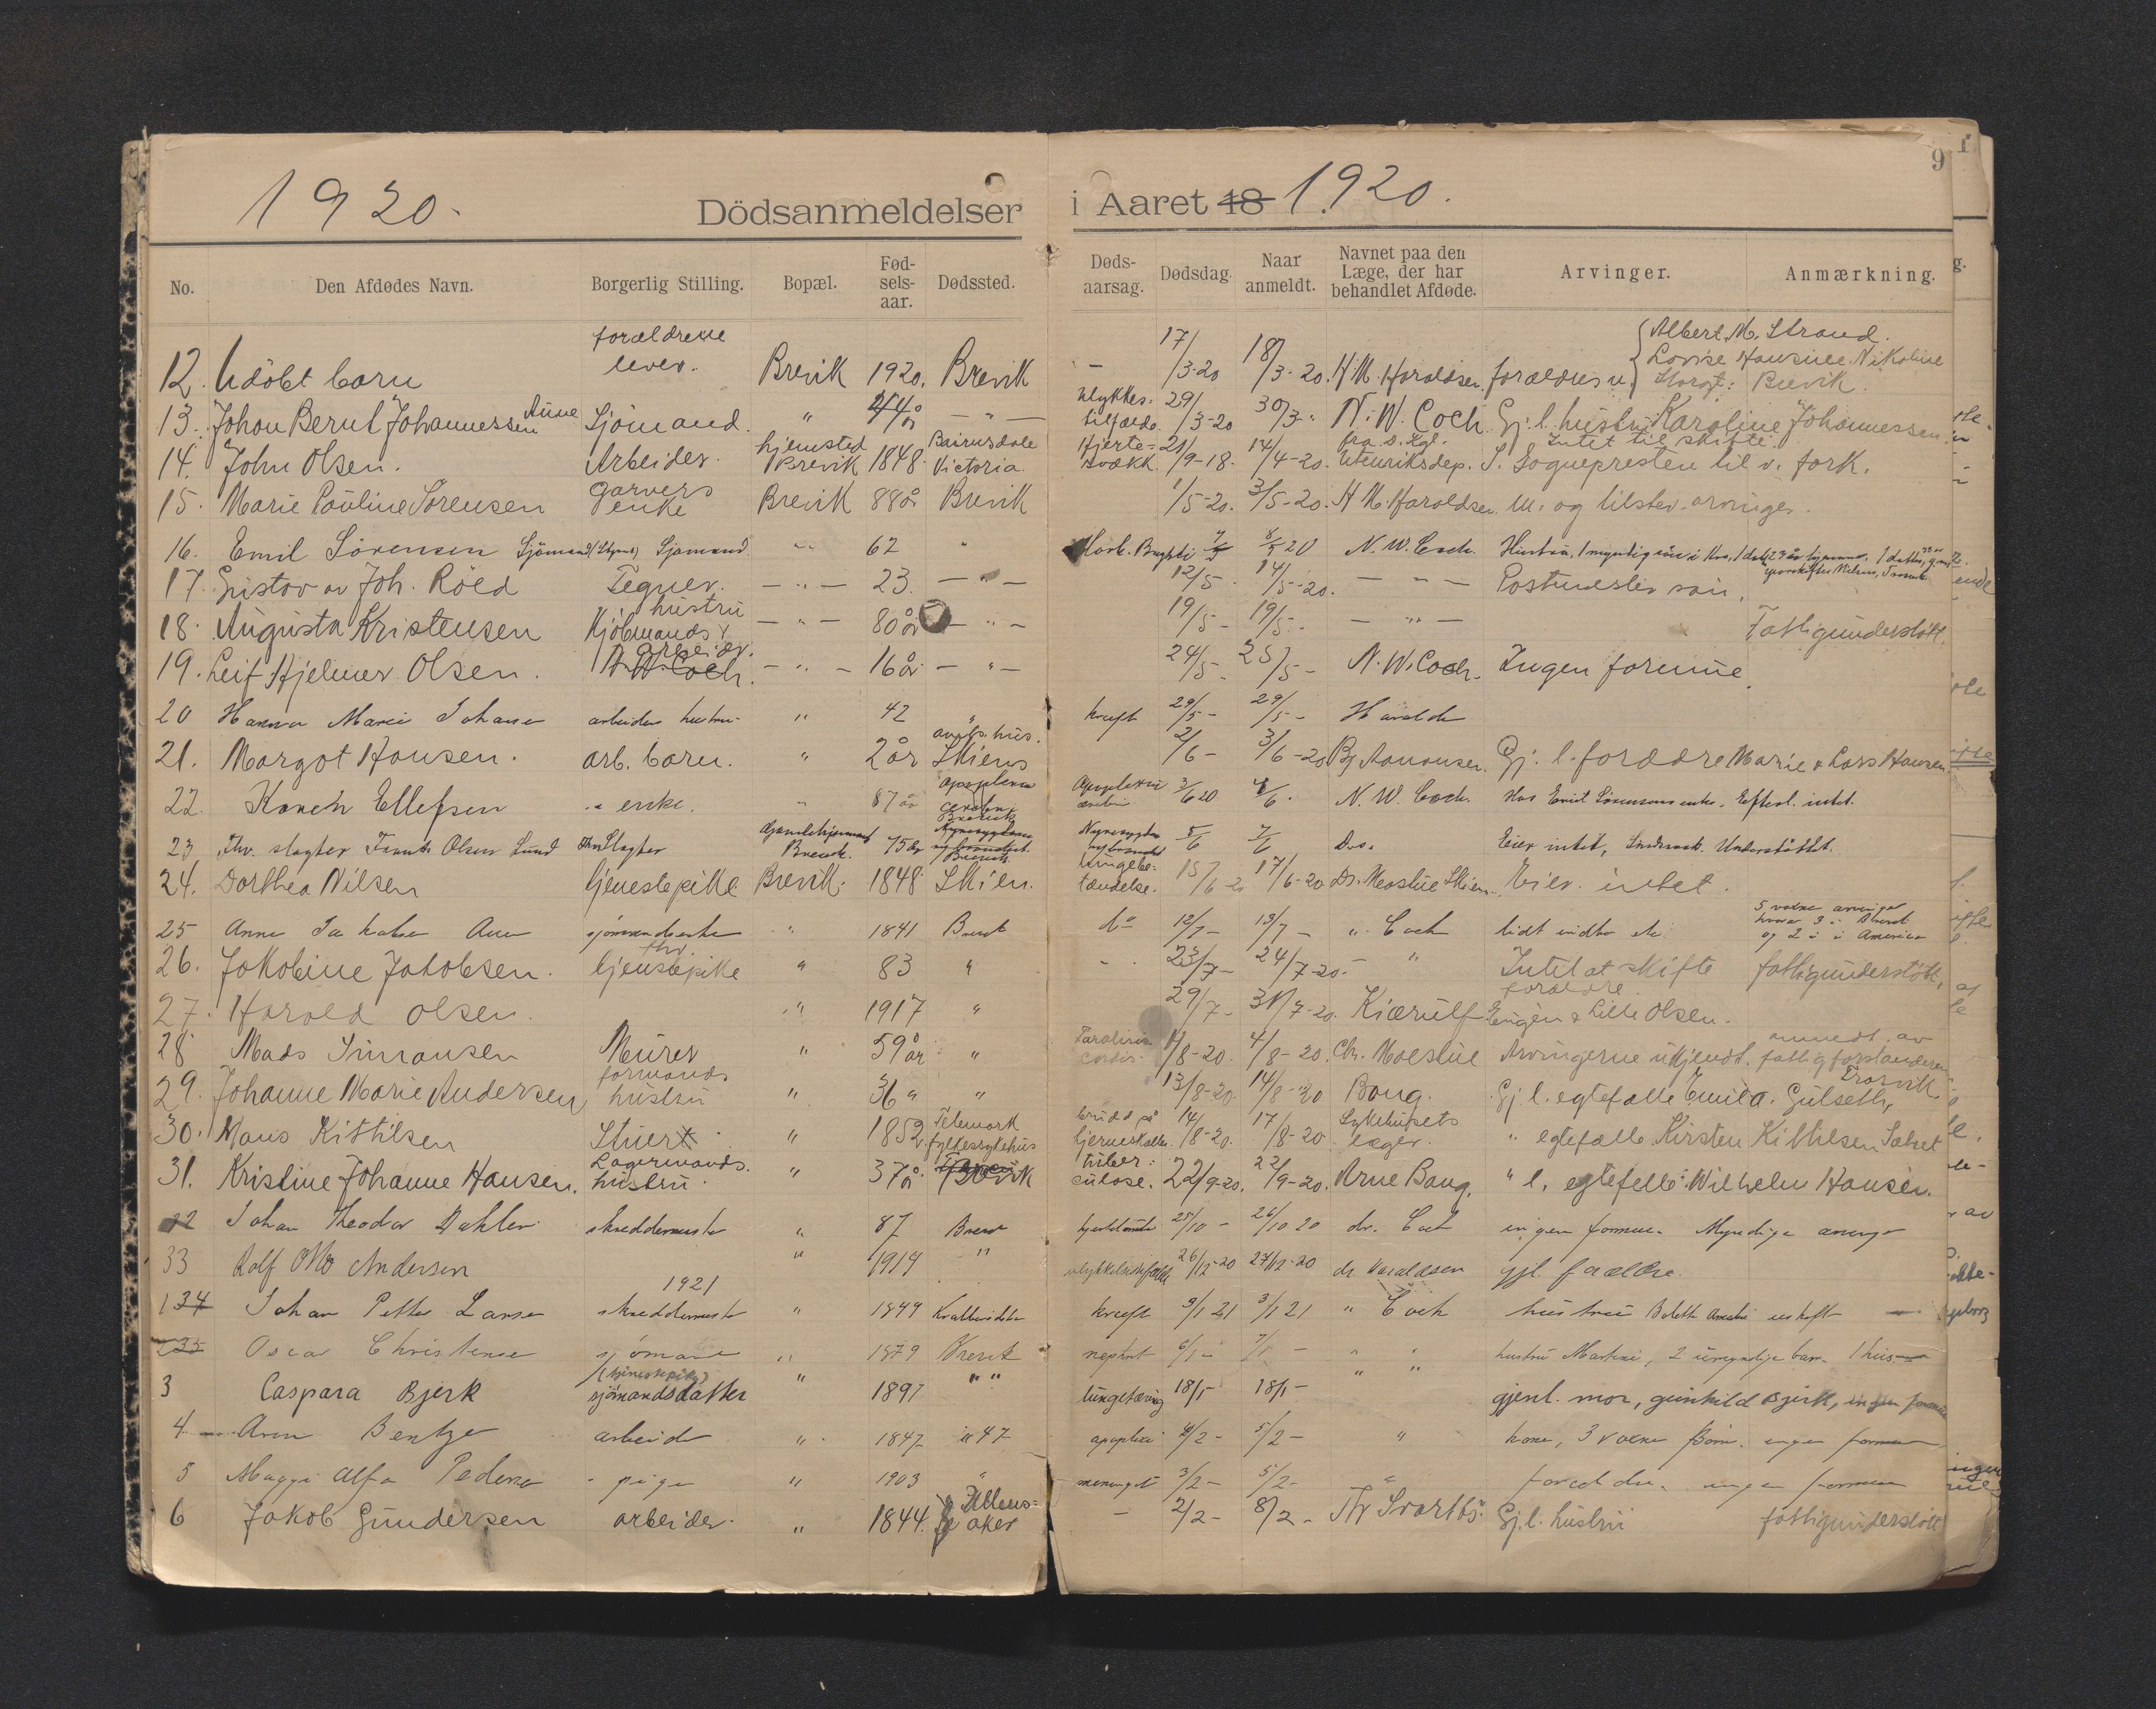 1920.
Dödsanmeldelser
i Aaret 18 1920.
9
No.
Den Afdødes Navn.
Borgerlig Stilling.
Bopæl.
Fød-
sels-
aar.
Dødssted.
Døds-
aarsag.
Dødsdag.
Naar
anmeldt.
Navnet paa den
Læge, der har
behandlet Afdøde.
Arvinger.
Anmærkning.
12. Udöbt barn forældrene lever. Brevik 1920. Brevik - 17/3-20 18/3-20. H.M. Haraldsen forældrene { Albert M. Strand. Lovise Hansine Nikoline Brevik.
13. Johan Bernt Johannessen Aune Sjömand. " 44 år - " - Ulykkes-tilfælde. 29/3-20 30/3- N.W. Coch Gj. l. hustru Karoline Johannessen.
14. John Olsen. Arbeider. hjemsted Brevik 1848. Bairnsdale Victoria. Hjerte- 21/9-18. 14/4-20. fra d. Kgl. Utenriksdep. Intet til skifte. S. Sognepresten til v. fork.
15. Marie Pauline Sörensen garvers enke Brevik 88 år Brevik 1/5-20. 3/5-20. H.M. Haraldsen m. og tilstev. arvinger.
16. Emil Sörensen Sjömand Sjömand " 62 " 8/5 20 N.W. Coch. Hustru, 1 myndig
17. Gustav av Joh. Röed Tegner. - " - 23. - " - 12/5- 14/5-20. - " - Postmester sön.
18. Augusta Kristensen Kjöbmands hustru - " - 80 år - " - 19/5- 19/5- - " - Fattigunderstött.
19. Leif Hjelmer Olsen. arbeider. N.W. Coch. - " - 16 år - " - 24/5- 25/5- N.W. Coch. Ingen formue.
20 Hanna Marie Johanse arbeiders hustru " 42 " kreft 29/5- 29/5- Haralds
21. Margot Hansen. arb. barn. " 2 år amts.hus. Skiens 2/6- 3/6-20 Bj. Aanonsen. Gj. l. forældre Marie & Lars Hansen.
22. Karen Ellefsen " enke. " 87 år apoplexia cerebri Brevik Apoplexia cerebri 3/6 20 4/6. N.W. Coch. Hos Emil Sörensens enke. Efterl. intet.
23 Fhv. slagter Frantz Olsen Lund Fhv. Slagter Gamlehjemmet Brevik. 75 år Brevik. Nyresygdom 5/6 7/6 Do. Eier intet, Understöttet.
24. Dorthea Nilsen tjenestepike Brevik. 1848. Skien. Lungebe-tændelse. 15/6-20 17/6-20 Dr. Moestue Skien. Eier intet.
25 Anna Jakobse sjömandsenke " 1841 Brevik do 12/7- 13/7- " Coch lidt indbo 5 voksne arvinger hvorav 3 i Brevik og 2 i America
26. Jakobine Jakobsen. fhv. tjenestepike " 83 " - 23/7- 24/7-20. - " Intet at skifte fattigunderstött.
27. Harald Olsen. " 1917 " 29/7- 31/7-20. Kiærulf forældre Eugen & Lilli Olsen.
28 Mads Simonsen Murer " 59 år " Paralisis cordis. 1/8-20. 4/8-20. Chr. Moestue Arvingerne ukjendt. anmeldt av fattigforstanderen
29. Johanne Marie Andersen formands hustru " 36 " " 13/8-20. 14/8-20 Bang. Gj. l. egtefælle Emil A. Gulseth, Trosvik
30. Hans Kittilsen Stuert " 1852. Telemark fylkessykehus brudd på hjerneskallen. 14/8-20. 17/8-20 Sykehusets læger. " egtefælle Kirsten Kittilsen
31. Kristine Johanne Hansen. Lagermands hustru. " 37 år. Brevik tuber-culose. 22/9-20. 22/9-20. Arne Bang. " l. egtefelle: Wilhelm Hansen.
32 Johan Theodor Dahler skreddermester " 87 Brevik 25/10- 26/10 20 dr. Coch ingen formue. Myndige arvinger
33 Rolf Otto Andersen " 1919 " ulykkelshendelse 26/12-20 27/12-20 dr. Haraldsen gjl. forældre.
1921
134 Johan Petter Larse skreddermester " 1849 kreft 3/1 21 3/1 21 " Coch hustru
235 Oscar Christense sjömand " 1879 Brevik nephrit 6/1- 7/1- " " hustru Martine, 2 umyndige barn. 1 hus
3 Caspara Bjerk (tjenestepike) sjömandsdatter " 1897 " " lungetæring 18/1- 18/1- " gjenl. mor, gunhild Bjerk, ingen formue
4 Aren Bentze arbeider " 1847 " 47 apoplexi 4/2- 5/2- " kone, 3 voksne börn. ingen formue
5 Maggi Alfa Pederse " pige " 1903 " meningit 3/2- 5/2- " foreldre. ingen formue
6 Jakob Gundersen arbeider. " 1844. Ullens-aker - 2/2- 8/2- Th Svartbö. Gj. l. hustru fattigunderstött